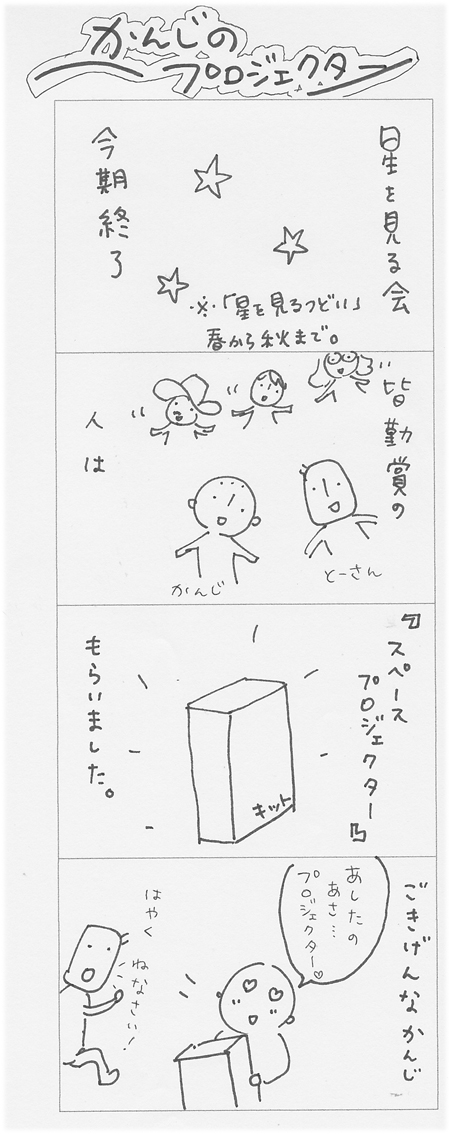 かんじの
プロジェクター
星を見る会
今期終了
※「星を見るつどい」
春から秋まで。
皆勤賞の
人は
とーさん
かんじ
『スペース
プロジェクター』
もらいました。
キット
ごきげんなかんじ
あしたの
あさ…
プロジェクター♡
はやく
ねなさい!